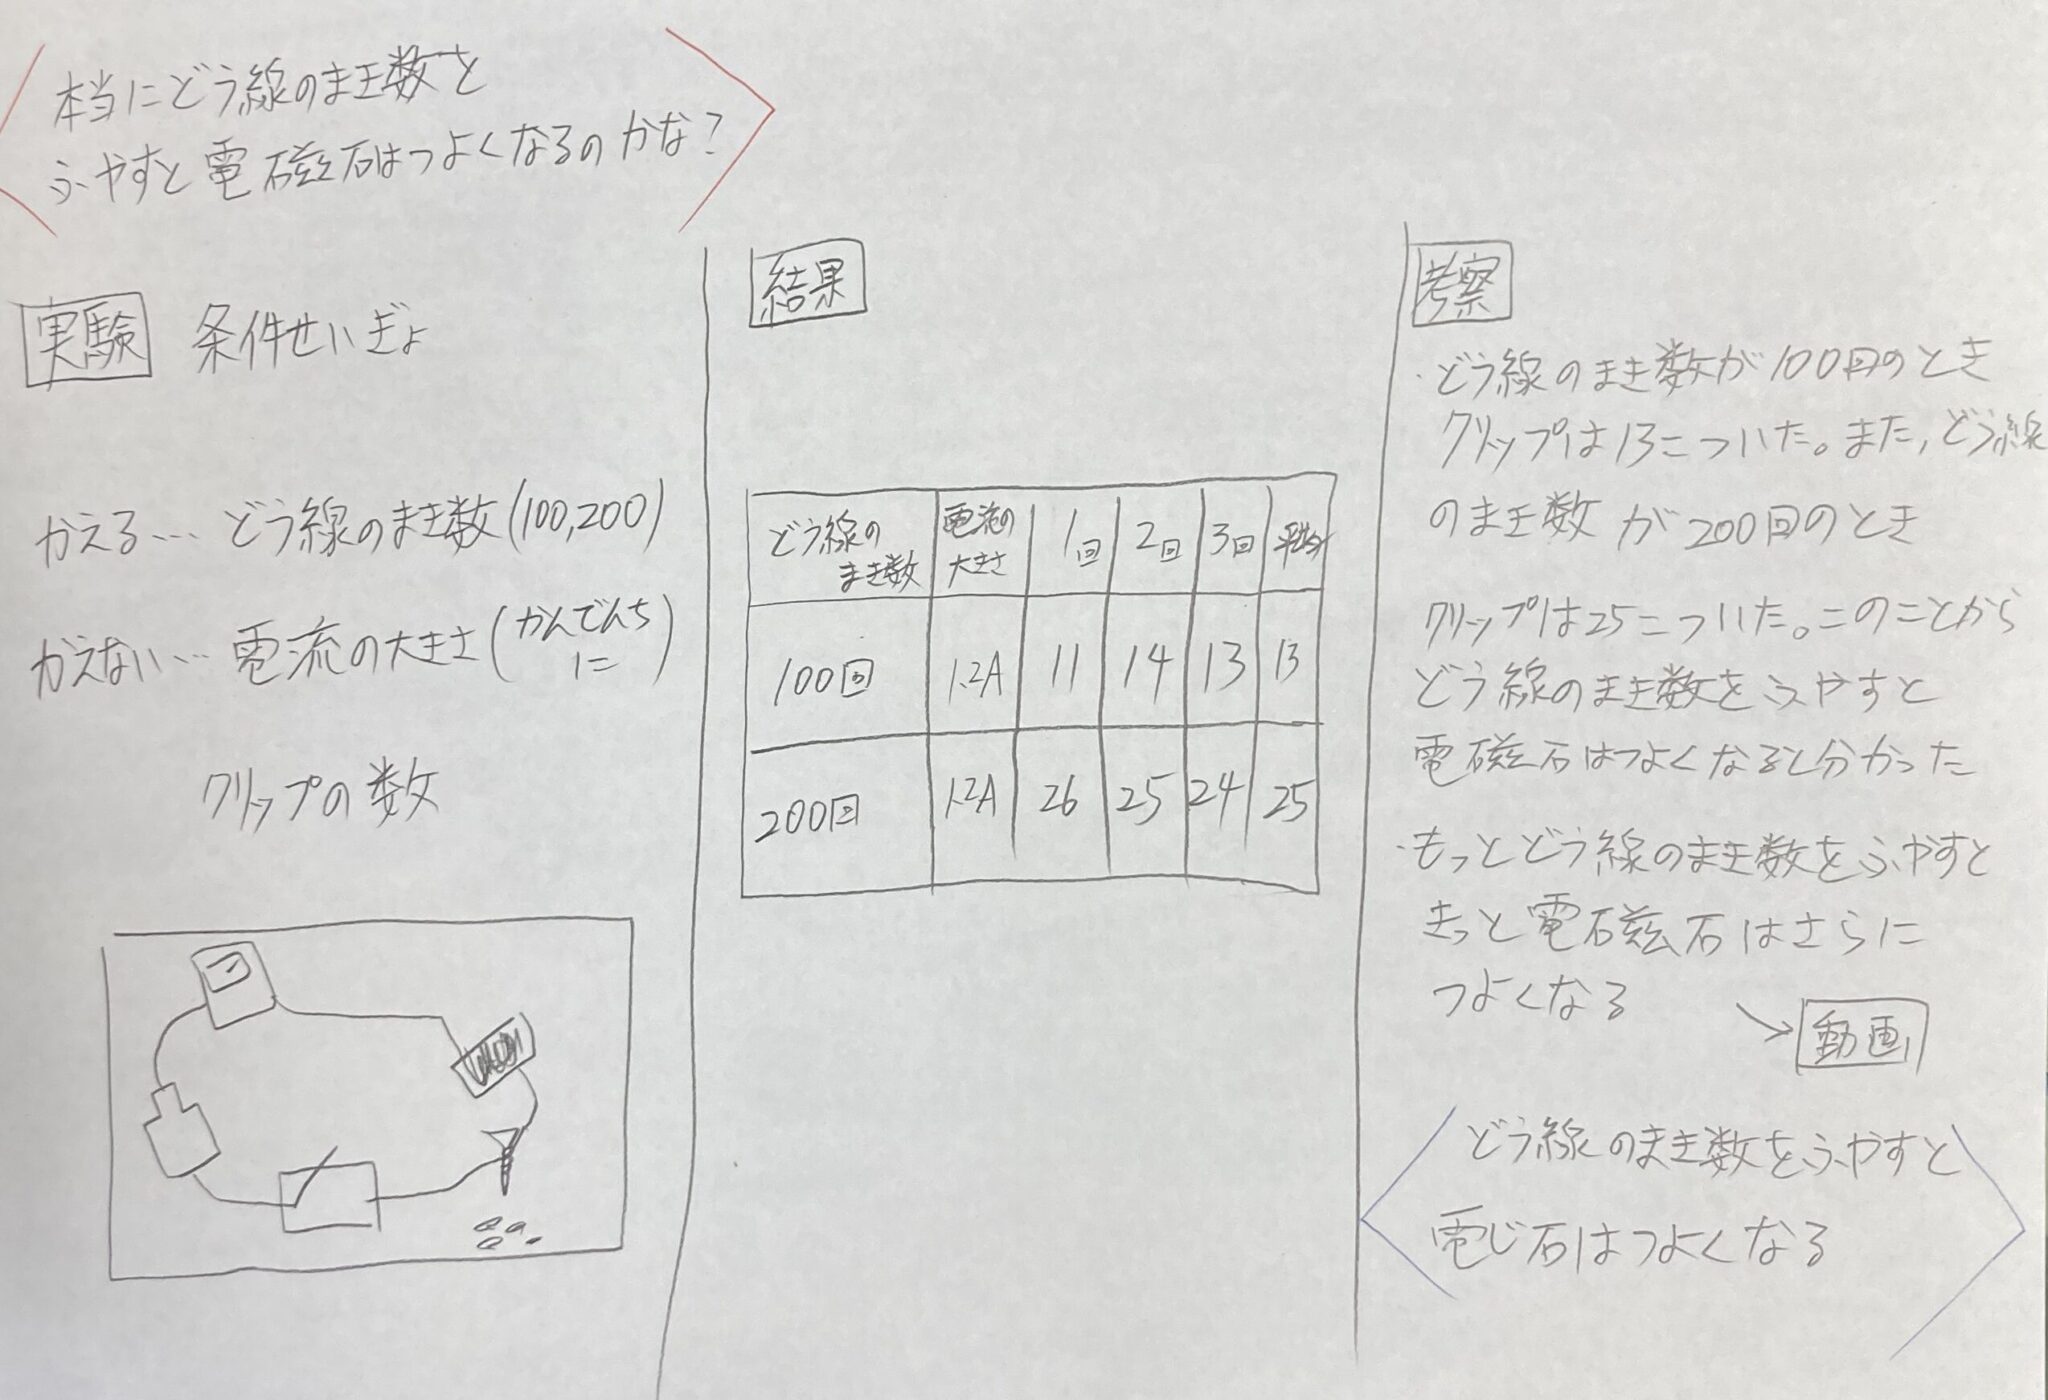 本当にどう線のまき数と
ふやすと電磁石はつよくなるのかな？
実験 条件せいぎょ
かえる…どう線のまき数(100,200)
かえない…電流の大きさ(かんでんち
に)
クリップの数
結果
どう線の
まき数
電流の
大きさ
1回 2回 3回 平均
100回 1.2A 11 14 13 13
200回 1.2A 26 25 24 25
考察
・どう線のまき数が100回のとき
クリップは13こついた。また,どう線
のまき数が200回のとき
クリップは25こついた。このことから
どう線のまき数をふやすと
電磁石はつよくなると分かった
・もっとどう線のまき数をふやすと
きっと電磁石はさらに
つよくなる
→動画
どう線のまき数をふやすと
電じ石はつよくなる